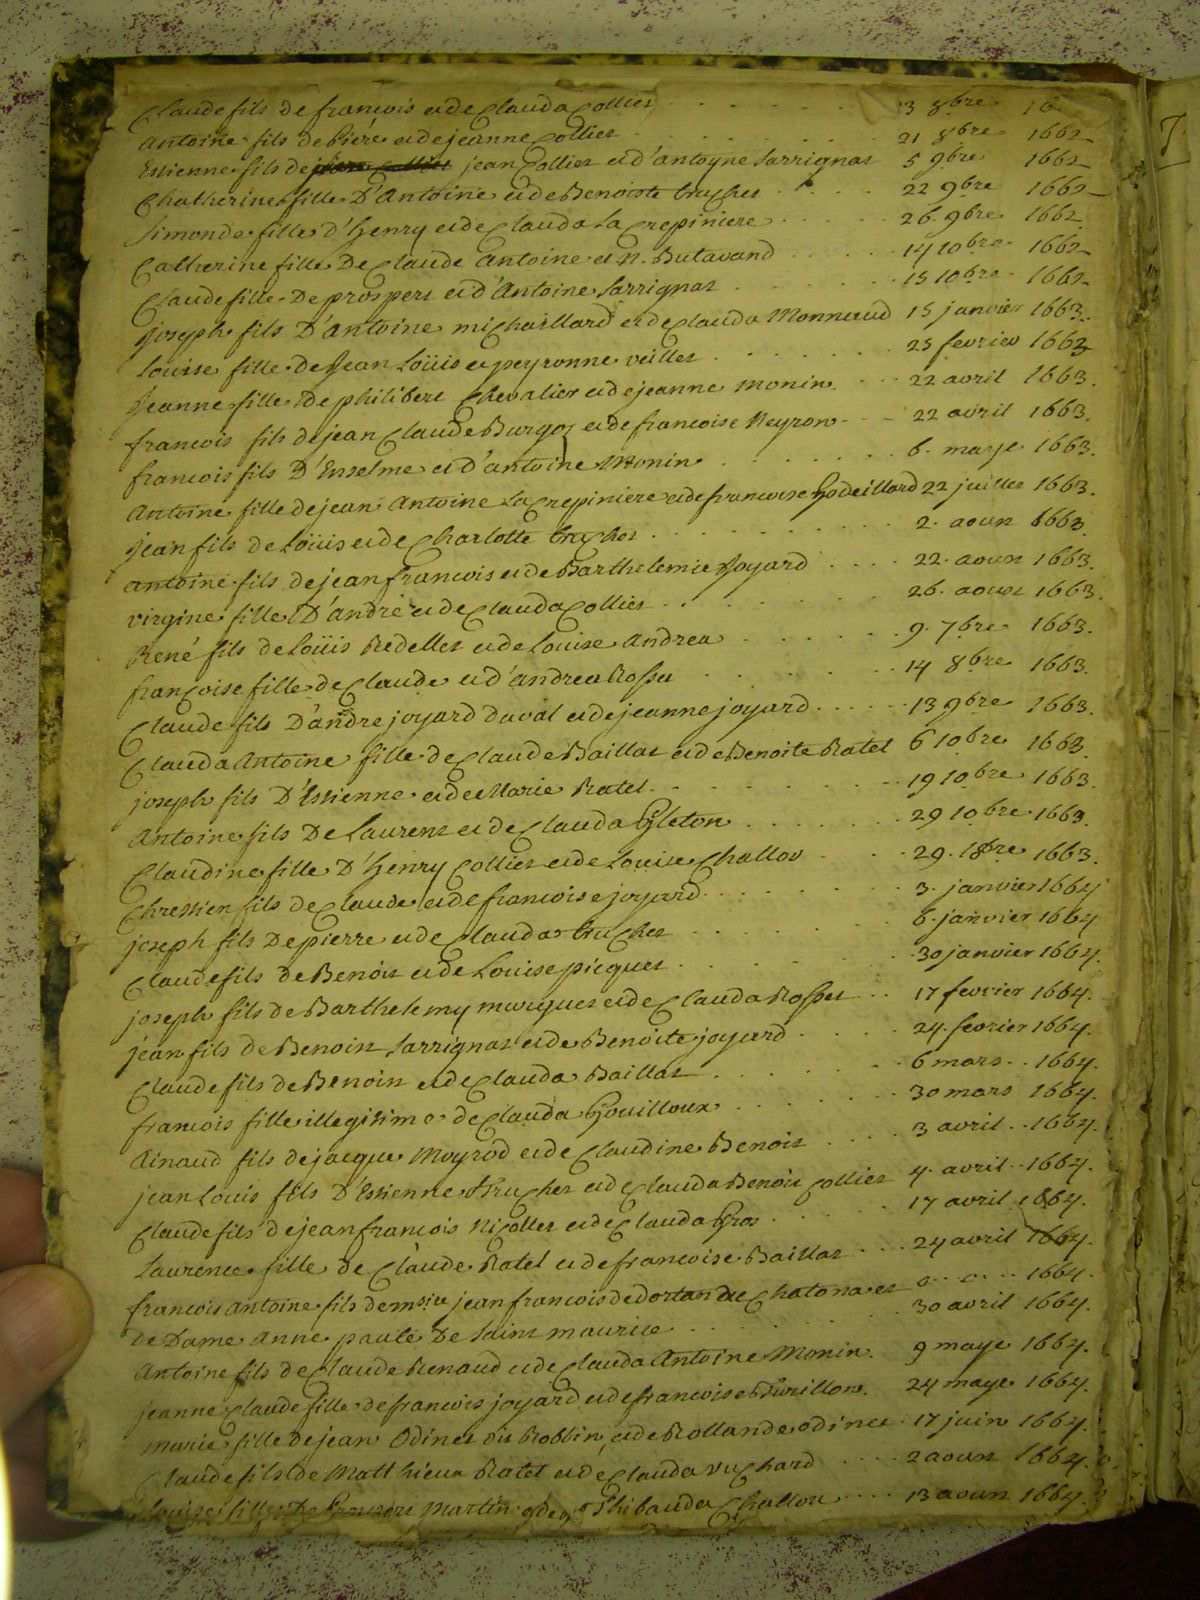 Claude fils de francois et de Clauda Collier . . . 3 8bre 16
Antoine fils de Piere et de jeanne Collier . . . 21 8bre 1662
Estienne fils de jean Collier et d'antoyne Sarrignat 5 9bre 1662
Chatherine fille D'Antoine et de Benoiste trucher . . . 22 9bre 1662
Simonde fille d'henry et de Clauda La Crepiniere . . . 26. 9bre 1662
Catherine fille De Claude Antoine et N. Butavand . . . 14 10bre 1662
Claude fille De prosper et d'Antoine Sarrignat . . . 15 10bre 1662
joseph fils D'antoine michaillard et de Clauda Monnaud 15 janvier 1663.
Louise fille de Jean Loüis et peyronne veillet . . . 25 fevrier 1663
jeanne fille de philibert Chevalier et de jeanne monin . . . 22 avril 1663.
francois fils de jean Claude Burgoz et de francoise Neyron . . . 22 avril 1663.
francois fils D'Enselme et d'antoine Monin . . . 6. maye 1663.
Antoine fille de jean Antoine La Crepiniere et de francoise Godeillard 22 juillet 1663.
jean fils de Loüis et de Charlotte trucher . . . 2. aoust 1663
antoine fils de jean francois et de Barthelemie Joyard . . . 22. aoust 1663.
virgine fille D'andré et de Clauda Collier . . . 26. aoust 1663.
René fils de Loüis Redellet et de Louise Andrea . . . 9. 7bre 1663.
françoise fille de Claude et d'andrea Rosset . . . 14 8bre 1663.
Claude fils D'andre joyard duval et de jeanne joyard . . . 13 9bre 1663.
Clauda Antoine fille de Claude Baillat et de Benoite Ratel 6 10bre 1663
joseph fils D'Estienne et de Marie Ratel . . . 19 10bre 1663.
Antoine fils De Laurent et de Clauda Gleton . . . 29 10bre 1663.
Claudine fille D'henry Collier et de Louise Challou . . . 29. 18bre 1663.
Chrestien fils de Claude et de francoise joyard . . . 3. janvier 1664
joseph fils De pierre et de Clauda trucher . . . 6. janvier 1664
Claude fils de Benoit et de Louise picquet . . . 30 janvier 1664
joseph fils de Barthelemy murguet et de Clauda Rosset . . 17 fevrier 1664.
jean fils de Benoist Sarrignat et de Benoite joyard . . . 24. fevrier 1664.
Claude fils de Benoist et de Clauda Baillat . . . 6 mars . . 1664.
francois fille illegitime de Clauda Gouilloux . . . 30 mars 1664.
Ainaud fils de jacque Moyrod et de Claudine Benoit . . . 3 avril . . 1664.
jean Louis fils D'Estienne trucher et de Clauda Benoit Collier 4. avril . . 1664.
Claude fils de jean francois Nicollet et de Clauda Gros . . . 17 avril 1664.
Laurence fille de Claude Ratel et de francoise Baillat . . . 24 avril 1664.
francois antoine fils de msire jean francois de dortan de Chatona et . . . 1664.
de Dame Anne paule De Saint maurice . . . 30 avril 1664.
Antoine fils de Claude Renaud et de Clauda Antoine Monin. 9 maye 1664.
jeanne Claude fille de francois joyard et de francoise Burillon. 24 maye 1664.
marie fille de jean Odinet dit Robbin et de Rollande odinet . 17 juin 1664.
Claude fils de Matthieu Ratel et de Clauda vuchard . . . 2 aoust 1664.
Louise fille De Martin et de Thibauda Challou . . . 13 aoust 1664.
7